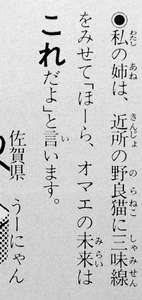 ◉私の姉は、近所の野良猫に三味線
をみせて「ほーら、オマエの未来は
これだよ」と言います。
佐賀県　うーにゃん